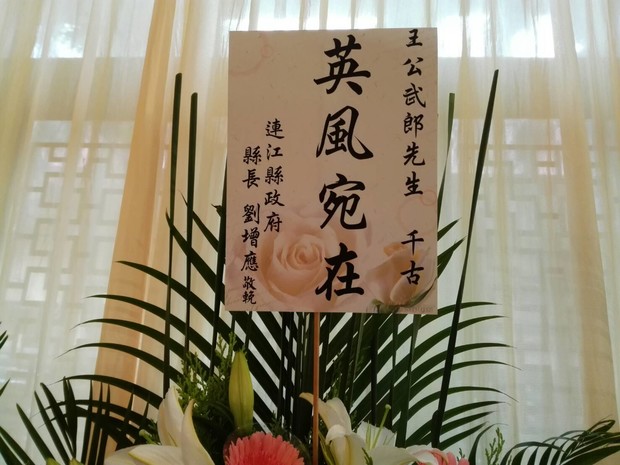 王公武郎先生 千古
英風宛在
連江縣政府
縣長 劉增應 敬輓